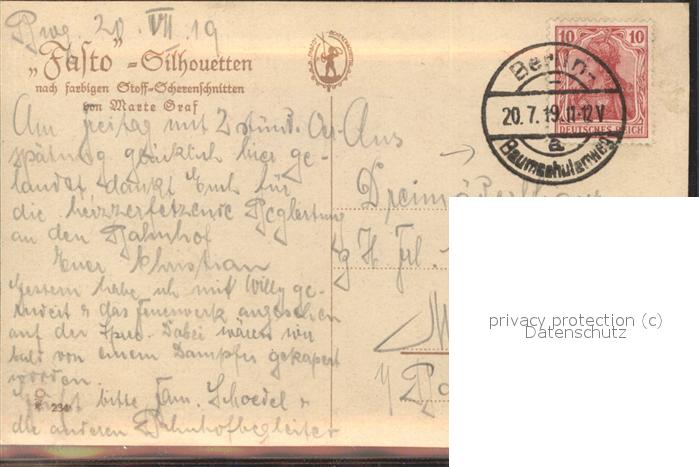 Bwg. 20. VII. 19
"Fasto" = Silhouetten
nach farbigen Stoff=Scherenschnitten
von Marte Graf
Am Freitag mit 2 stünd.
spätung glücklich hier ge-
landet dankt Euch für
die herzzerfetzende Begleitung
an den Bahnhof
Euer Christian
Gestern habe ich mit Willy ge-
rudert & das Feuerwerk angesehen
auf der Spree. Dabei wären wir
bald von einem Dampfer gekapert
worden.
bitte Fam. Schoedel &
die anderen Bahnhofbegleiter
234
10 10
DEUTSCHES REICH
Berlin-
20.7.19.11-12V
a
Baumschulenweg
privacy protection (c)
Datenschutz